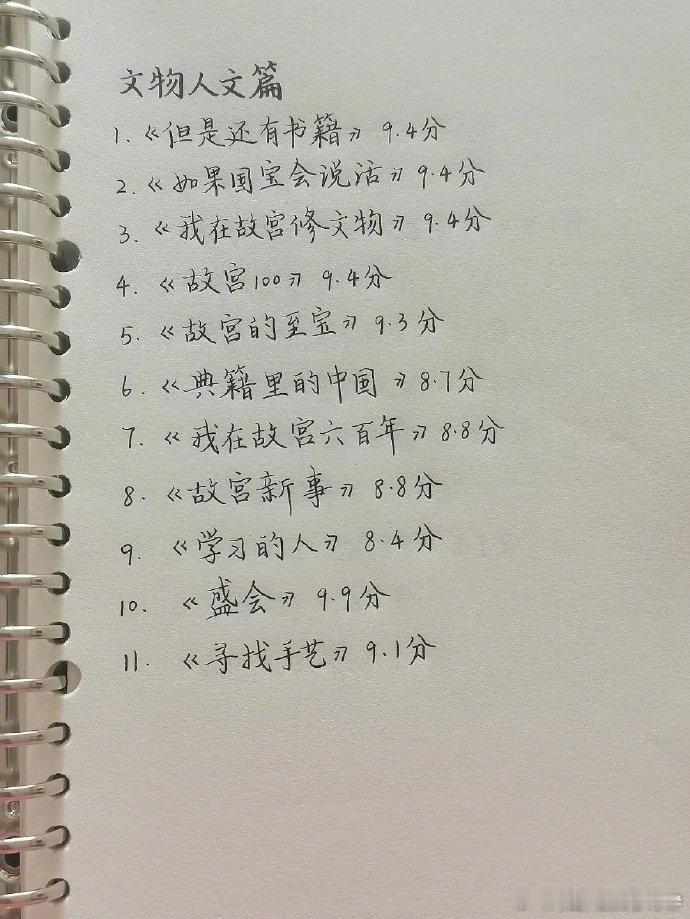 文物人文篇
1.《但是还有书籍》 9.4分
2.《如果国宝会说话》9.4分
3.《我在故宫修文物》 9.4分
4.《故宫100》 9.4分
5.《故宫的至宝》9.3分
6.《典籍里的中国》8.7分
7.《我在故宫六百年》8.8分
8.《故宫新事》 8.8分
9.《学习的人》 8.4分
10.《盛会》 9.9分
11.《寻找手艺》 9.1分